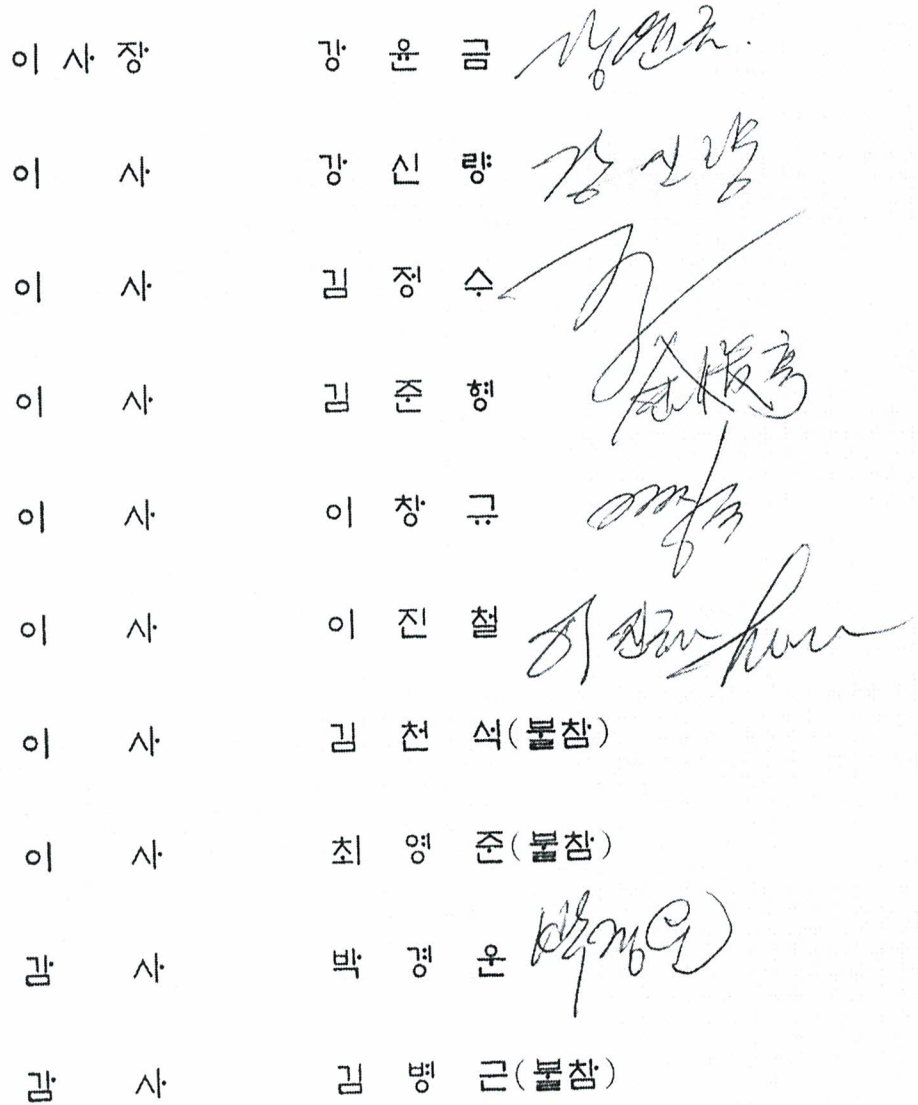 이 사 장 강 윤 금
이 사 강 신 량 강 신 량
이 사 김 정 수
이 사 김 준 형
이 사 이 창 규
이 사 이 진 철
이 사 김 천 석(불참)
이 사 최 영 준(불참)
감 사 박 경 운 박경운
감 사 김 병 근(불참)